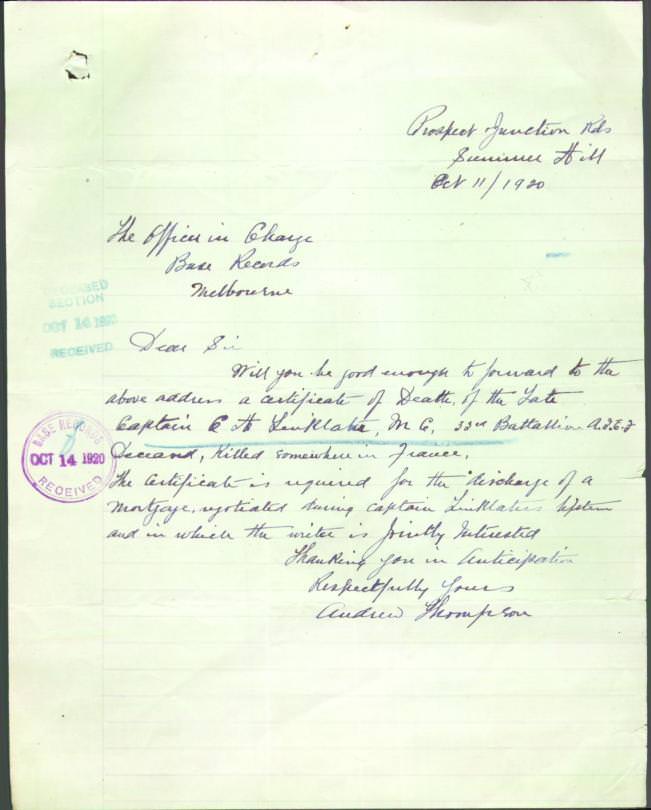 Prospect Junction Rds
Summer Hill
Oct 11/1920
The Officer in Charge
Base Records
Melbourne
DECEASED
SECTION
OCT 14 1920
RECEIVED
Dear Sir
Will you be good enough to forward to the
above address a certificate of Death, of the Late
Captain E H Linklater, M C, 33rd Battallion A.I.F
Deceased, Killed somewhere in France,
The Certificate is required for the discharge of a
Mortgage, negotiated during Captain Linklaters lifetime
and in which the writer is Jointly Interested
Thanking you in Anticipation
Respectfully Yours
Andrew Thompson
BASE RECORDS
OCT 14 1920
RECEIVED